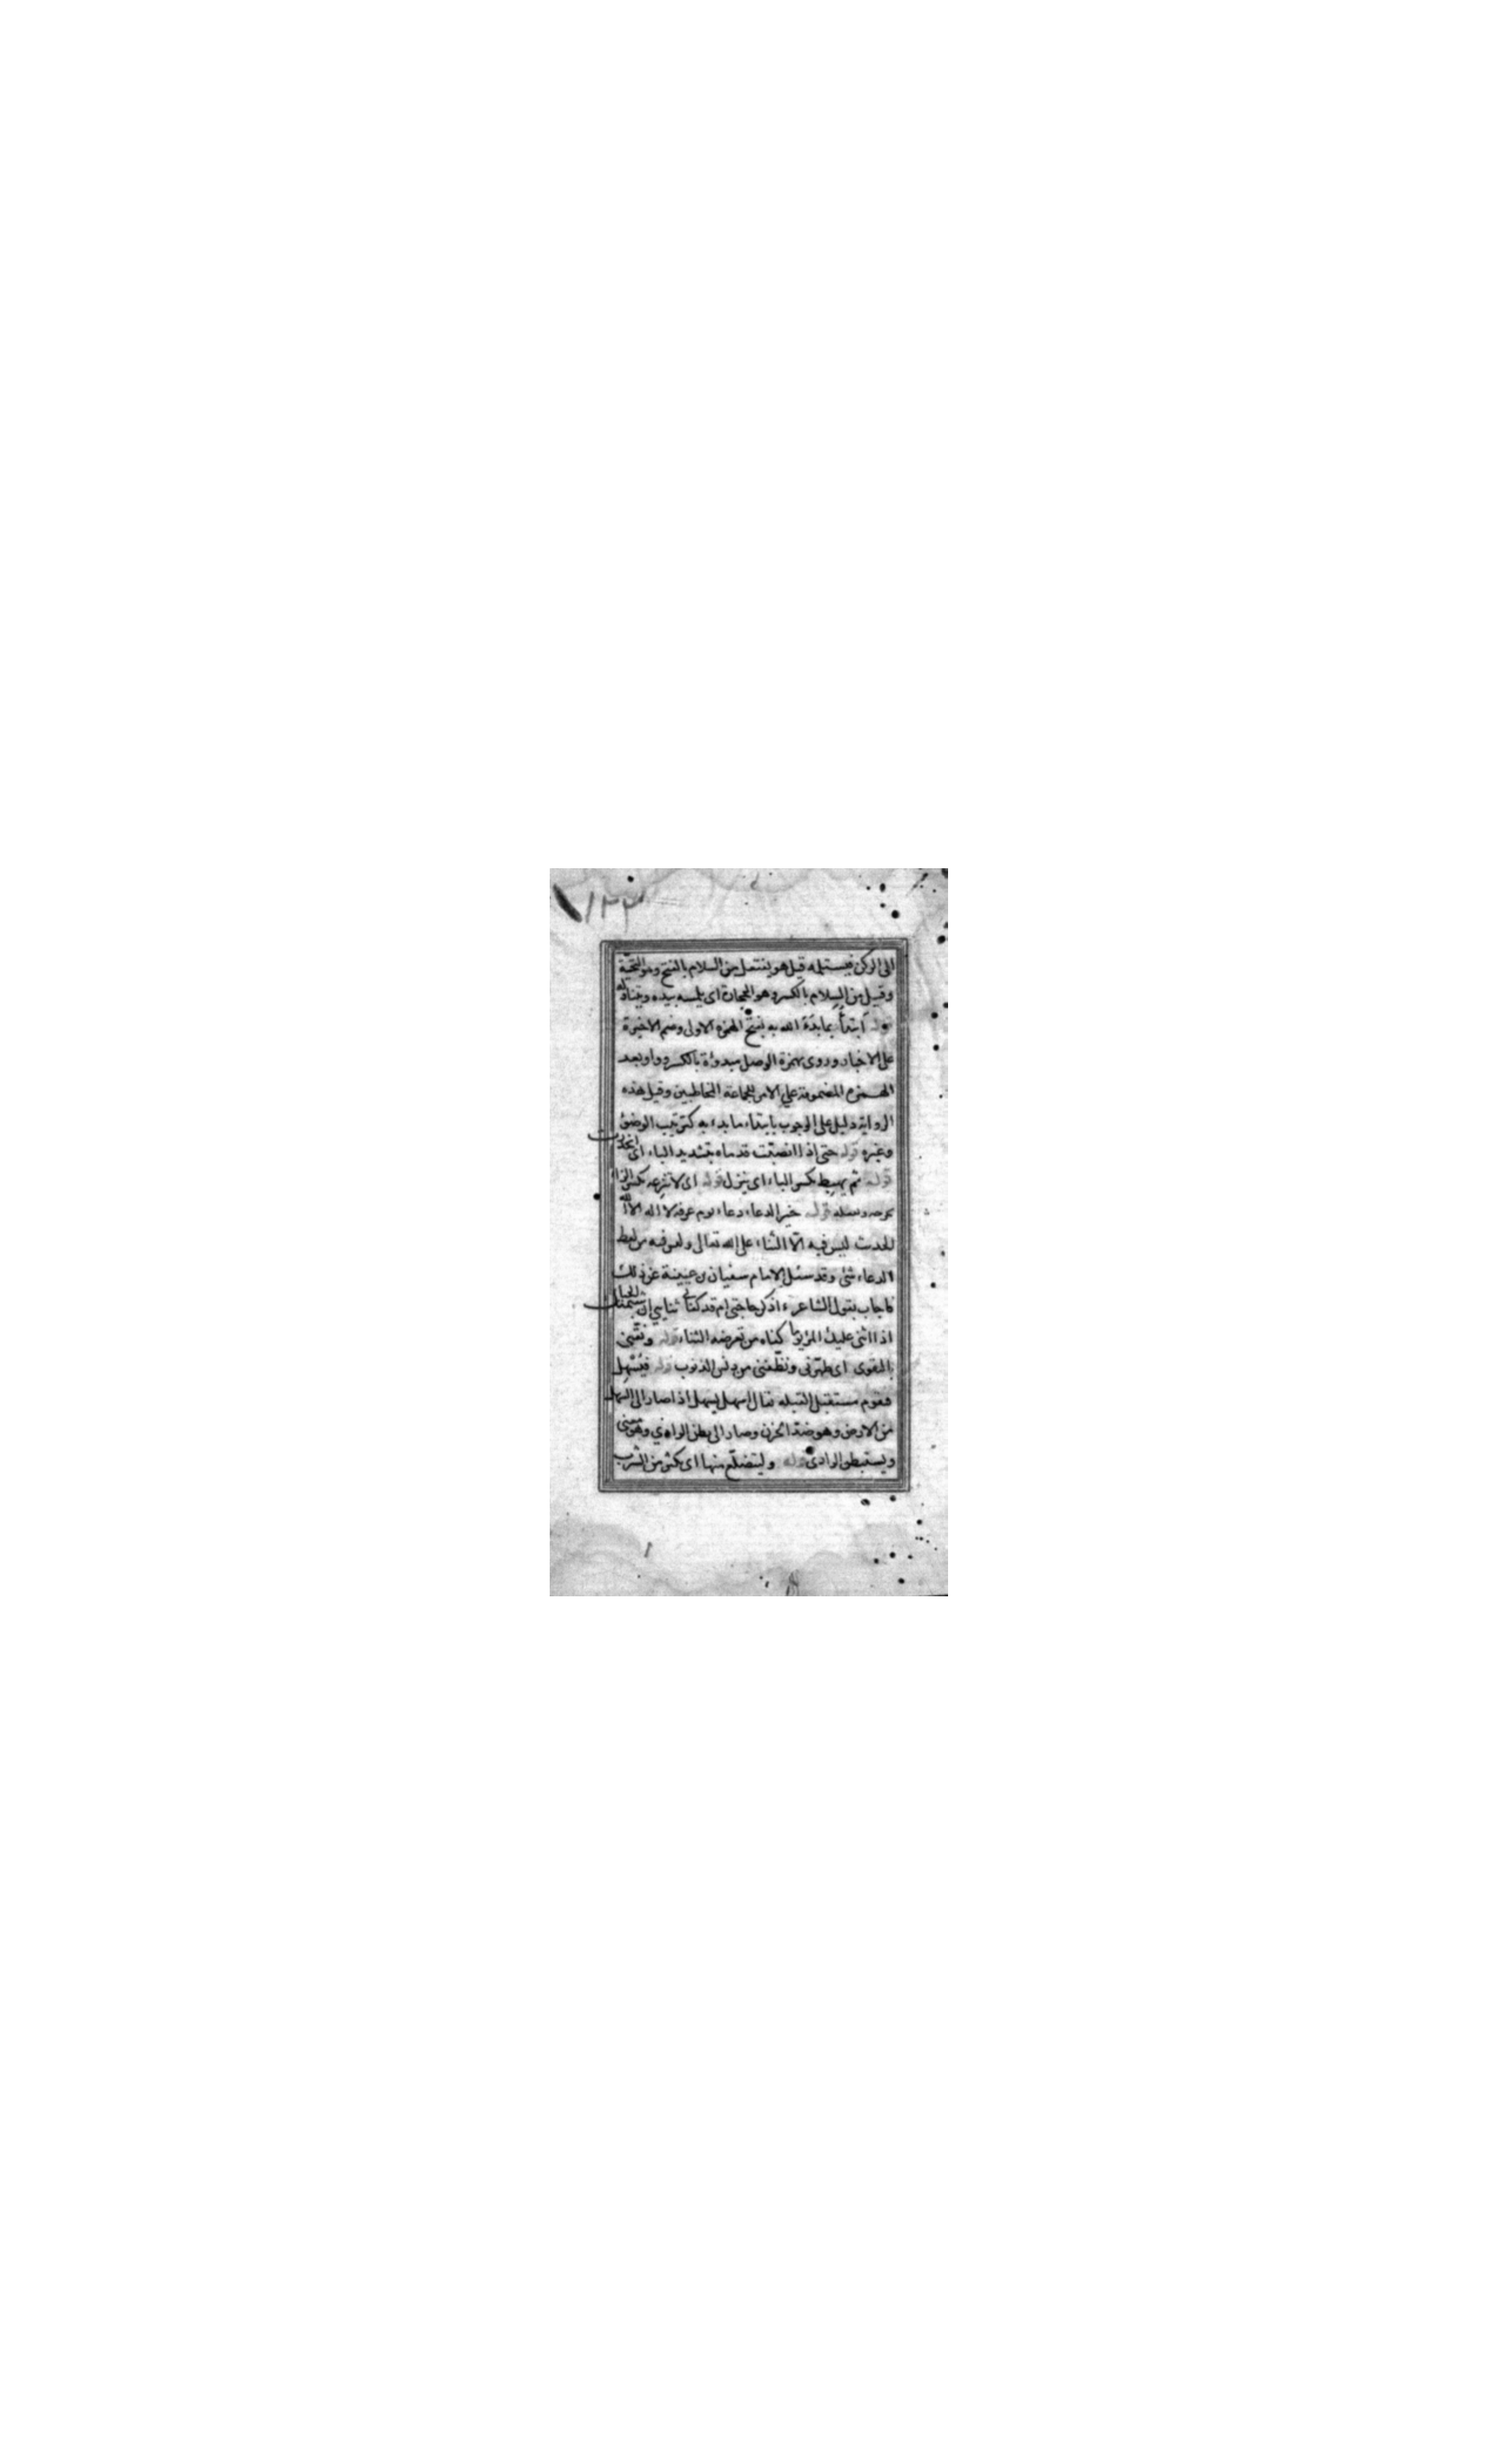 ١٢٢
الى الركن فيستلمه قيل هو يفتعل من السلام بالفتح وهو التحية
وقيل من السلام بالكسر وهو الحجارة اى يلمسه بيده ويتناوله
قوله ابتدأ بما بدء الله به بفتح الهمزه الاولى وضم الاخيرة
على الاخبار وروى بهمزة الوصل مبدوة بالكسر وواو بعد
الهمزه المضمومة على الامر للجماعة المخاطبين وقيل هذه
الرواية دليل على الوجوب بابتداء ما بدء به كترتيب الوضوء
وغيره قوله حتى اذا انصبت قدماه بتشديد الباء اى انحدرت
قوله ثم يهبط بكسر الباء اى ينزل قوله اى لا تنزعه بكسر الزاء
قوله خير الدعاء دعاء يوم عرفه لا اله الا الله
الحدث ليس فيه الا الثناء على الله تعالى وليس فيه من لفظ
الدعاء شئ وقد سئل الامام سفيان بن عيينة عن ذلك
فاجاب بقول الشاعر ء اذكر حاجتى ام قد كفانى ثنايي ان شيمتك الحياء
اذا اثنى عليك المرؤ يوما كفاه من تعرضه الثناء قوله ونقنى
بالتقوى اى طهرنى ونظفنى من دنس الذنوب قوله فيسهل
فيقوم مستقبل القبله يقال اسهل يسهل اذا صار الى السهل
من الارض وهو ضد الحزن وصار الى بطن الوادي وهو معنى
ويستبطن الوادى قوله وليتضلع منها اى يكثر من الشرب